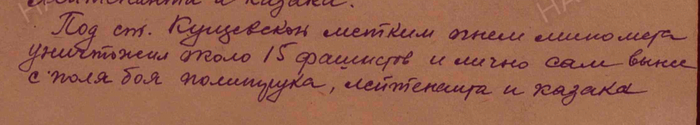 лейтенанта и казака.
Под ст. Кущевской метким огнем миномета
уничтожил около 15 фашистов и лично сам вынес
с поля боя политрука, лейтенанта и казака